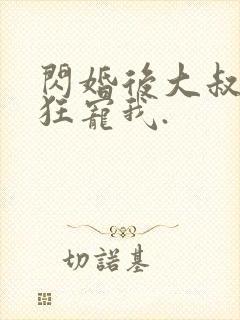 閃婚後大叔
狂寵我.
切諾基